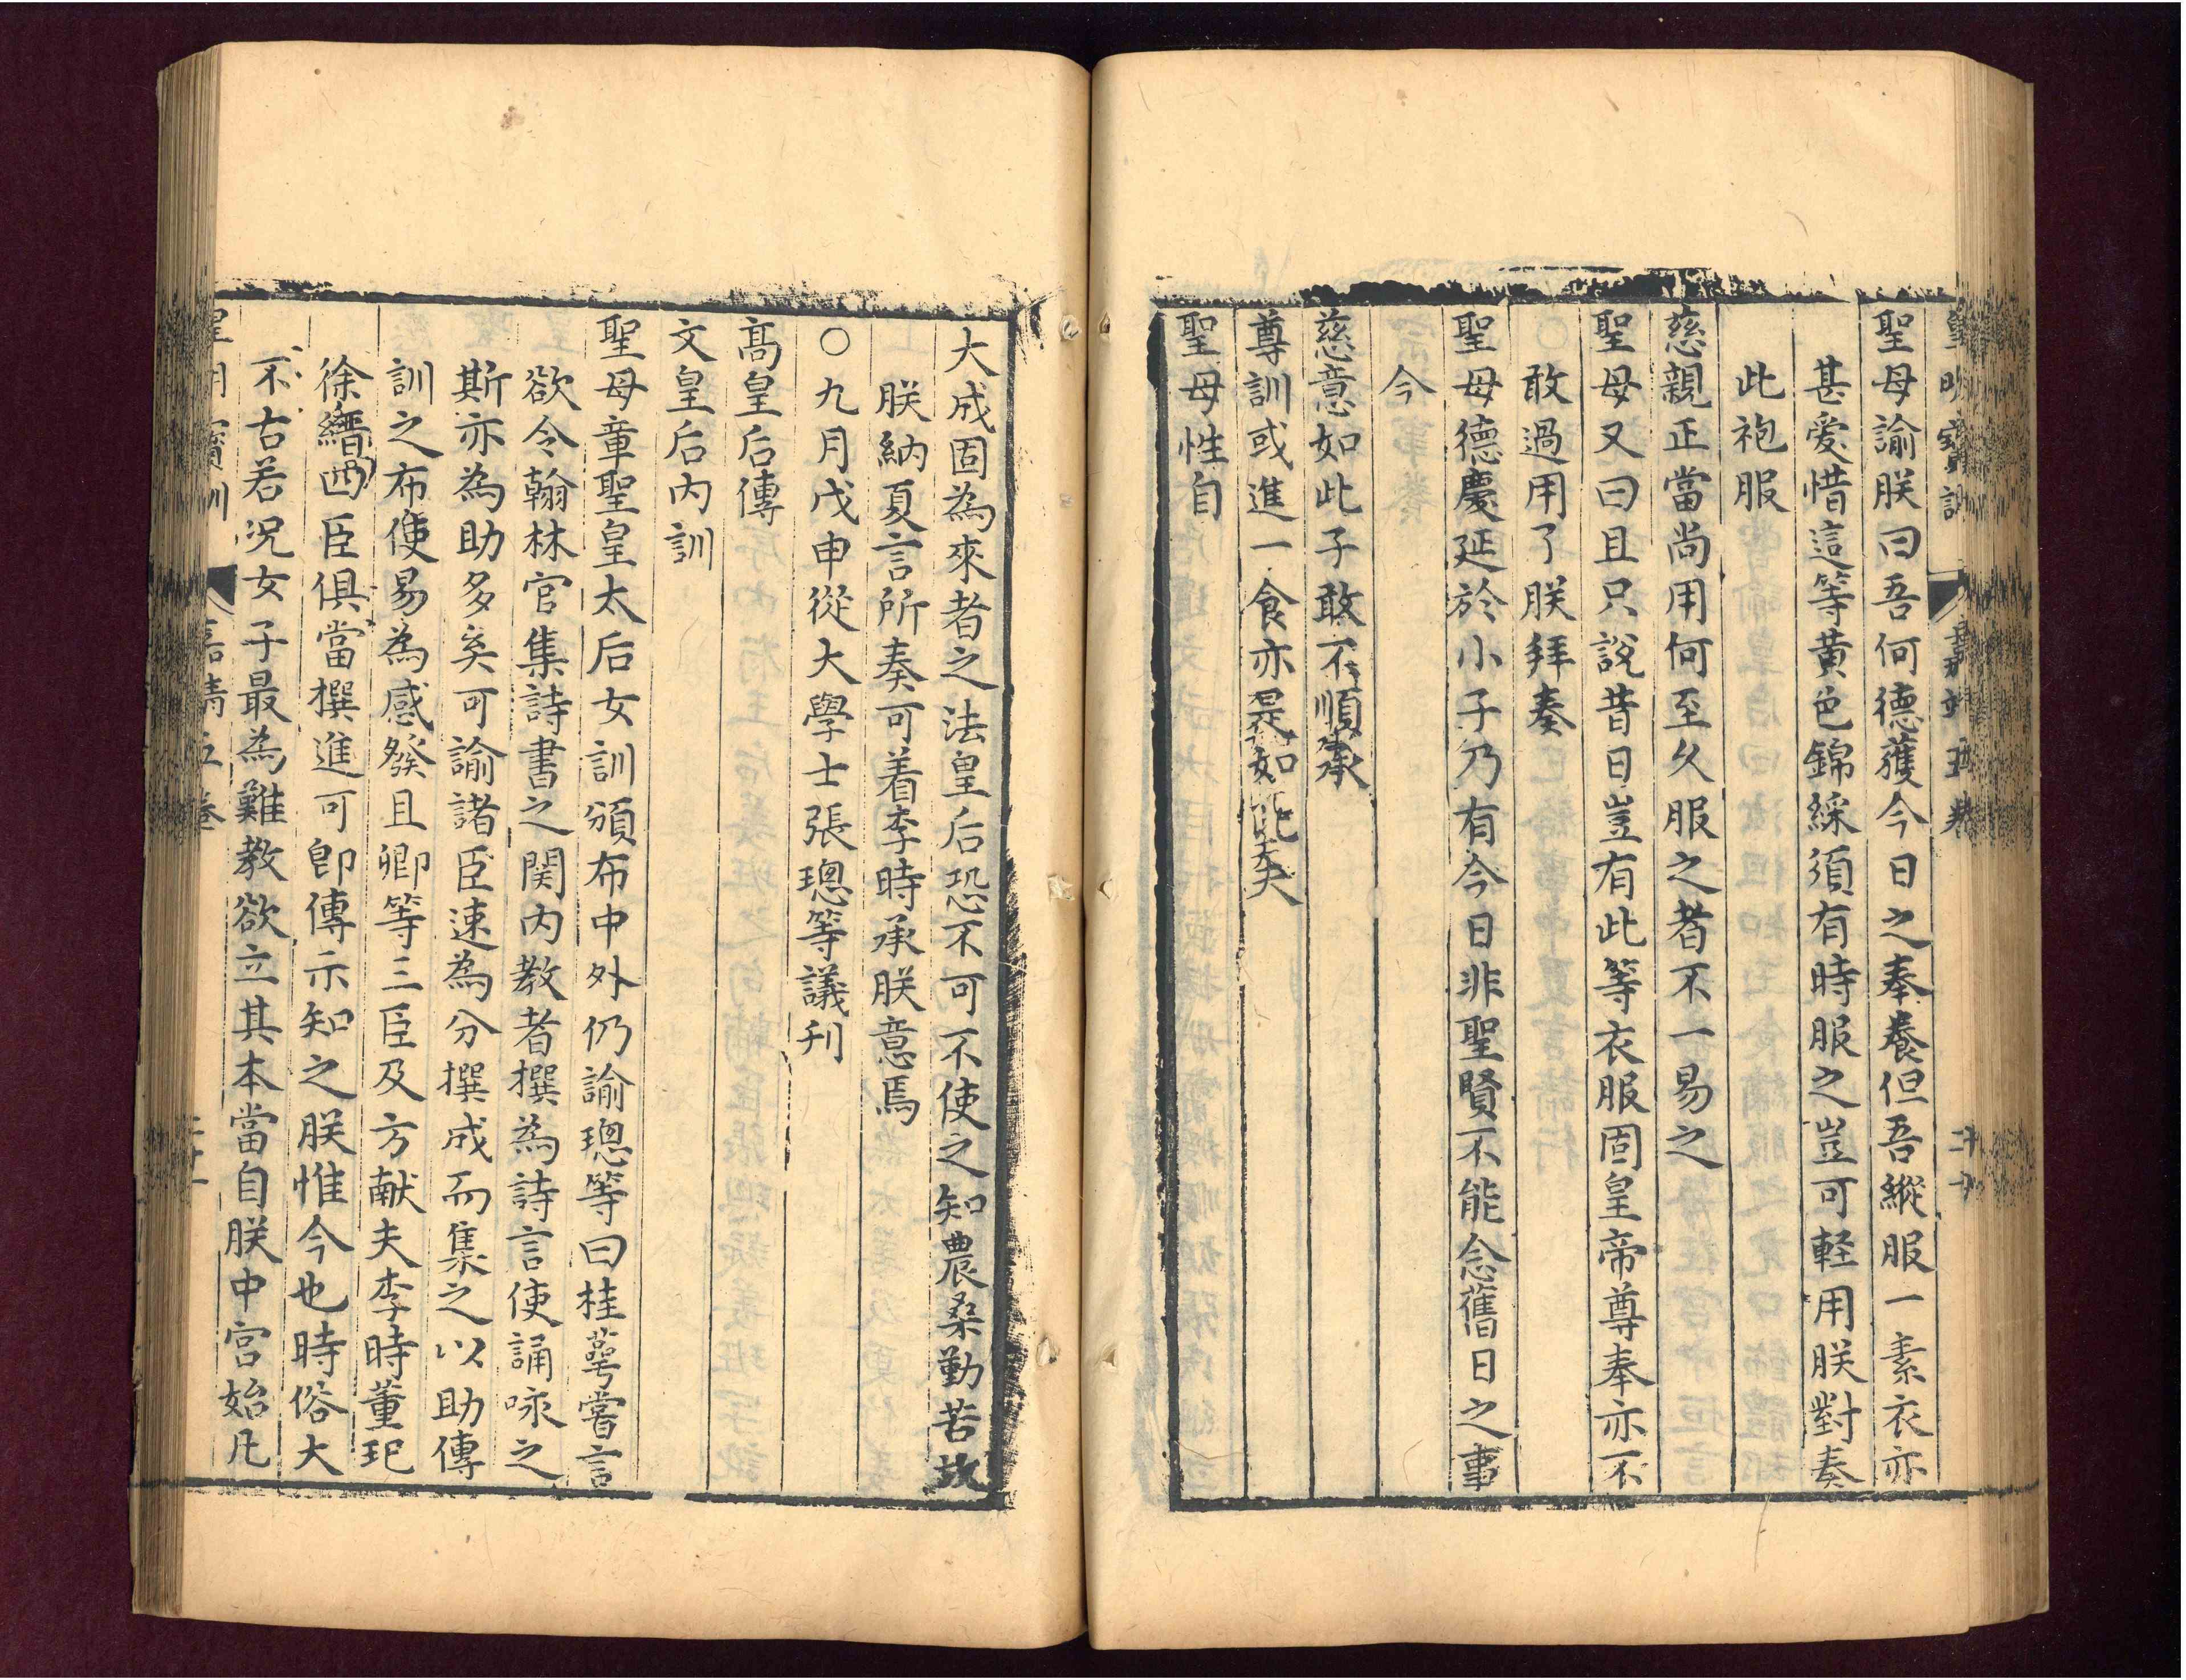 皇明寶訓 嘉靖五卷 二十一
聖母諭朕曰吾何德獲今日之奉養但吾縱服一素衣亦
甚愛惜這等黃色錦綵須有時服之豈可輕用朕對奏
此袍服
慈親正當尚用何至久服之者不一易之
聖母又曰且只說昔日豈有此等衣服固皇帝尊奉亦不
敢過用了朕拜奏
聖母德慶延於小子乃有今日非聖賢不能念舊日之事
今
慈意如此子敢不順承
尊訓或進一食亦是如此矣
聖母性自
大成固為來者之法皇后恐不可不使之知農桑勤苦故
朕納夏言所奏可着李時承朕意焉
○九月戊申從大學士張璁等議刊
高皇后傳
文皇后內訓
聖母章聖皇太后女訓頒布中外仍諭璁等曰桂萼嘗言
欲令翰林官集詩書之関內教者撰為詩言使誦咏之
斯亦為助多矣可諭諸臣速為分撰成而集之以助傳
訓之布使易為感發且卿等三臣及方献夫李時董玘
徐縉四臣俱當撰進可卽傳示知之朕惟今也時俗大
不古若況女子最為難教欲立其本當自朕中宮始凡
皇明寶訓 嘉靖五卷